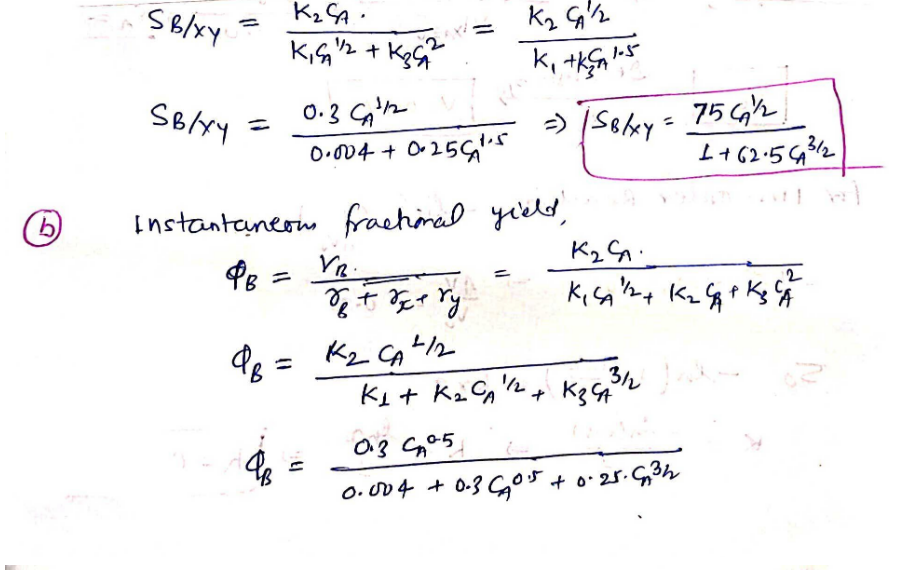 S_B/xy = K₂C_A. / (K₁C_A^1/2 + K₃C_A^2) = K₂ C_A^1/2 / (K₁ + K₃C_A^1.5)
S_B/xy = 0.3 C_A^1/2 / (0.004 + 0.25C_A^1.5) ⇒ S_B/xy = 75 C_A^1/2 / (1 + 62.5 C_A^3/2)
(b) Instantaneous fractional yield,
Φ_B = r_B. / (r_B + r_x + r_y) = K₂C_A. / (K₁C_A^1/2 + K₂C_A + K₃C_A^2)
Φ_B = K₂ C_A^1/2 / (K₁ + K₂C_A^1/2 + K₃C_A^3/2)
Φ_B = 0.3 C_A^0.5 / (0.004 + 0.3 C_A^0.5 + 0.25.C_A^3/2)